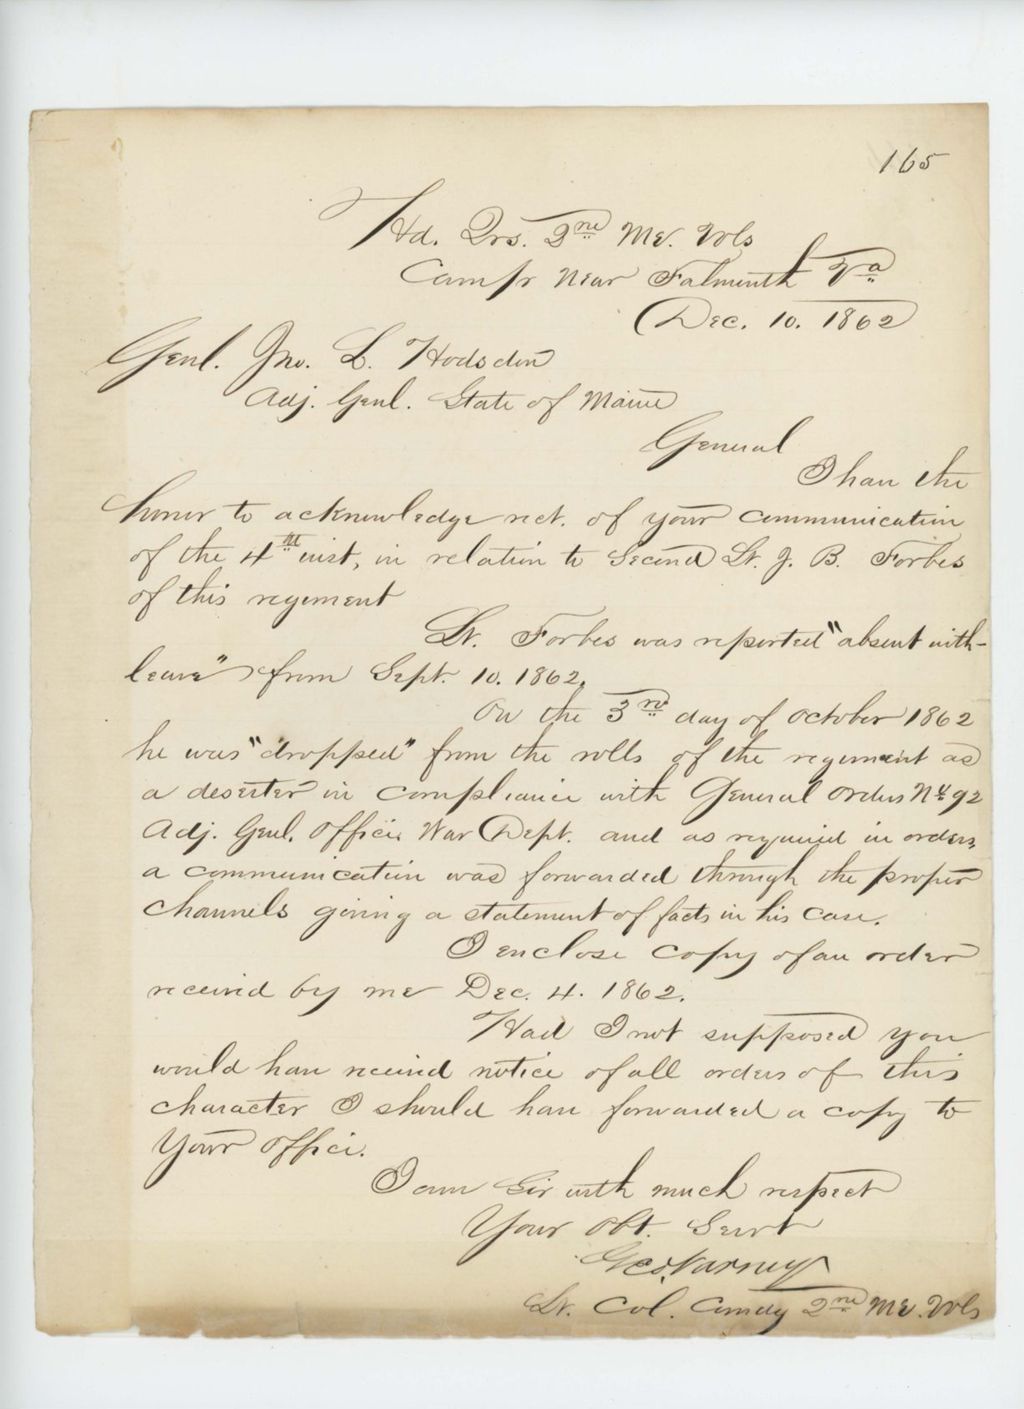 165
Hd. Qrs. 2nd Me. Vols
Camp Near Falmouth Va
Dec. 10. 1862
Genl. Jno. L. Hodsdon
Adj. Genl. State of Maine
General
I have the
honor to acknowledge rect. of your communication
of the 4th inst, in relation to Second Lt. J. B. Forbes
of this regiment
Lt. Forbes was reported "absent with-
leave" from Sept. 10. 1862.
On the 3rd day of October 1862
he was "dropped" from the rolls of the regiment as
a deserter in compliance with General Orders No 92
Adj. Genl. Office War Dept. and as required in orders,
a communication was forwarded through the proper
channels giving a statement of facts in his case.
I enclose copy of an order
received by me Dec. 4. 1862.
Had I not supposed you
would have received notice of all orders of this
character I should have forwarded a copy to
Your office.
I am Sir with much respect
Your Obt. Servt
Geo. Varney
Lt. Col. Comdg 2nd Me. Vols